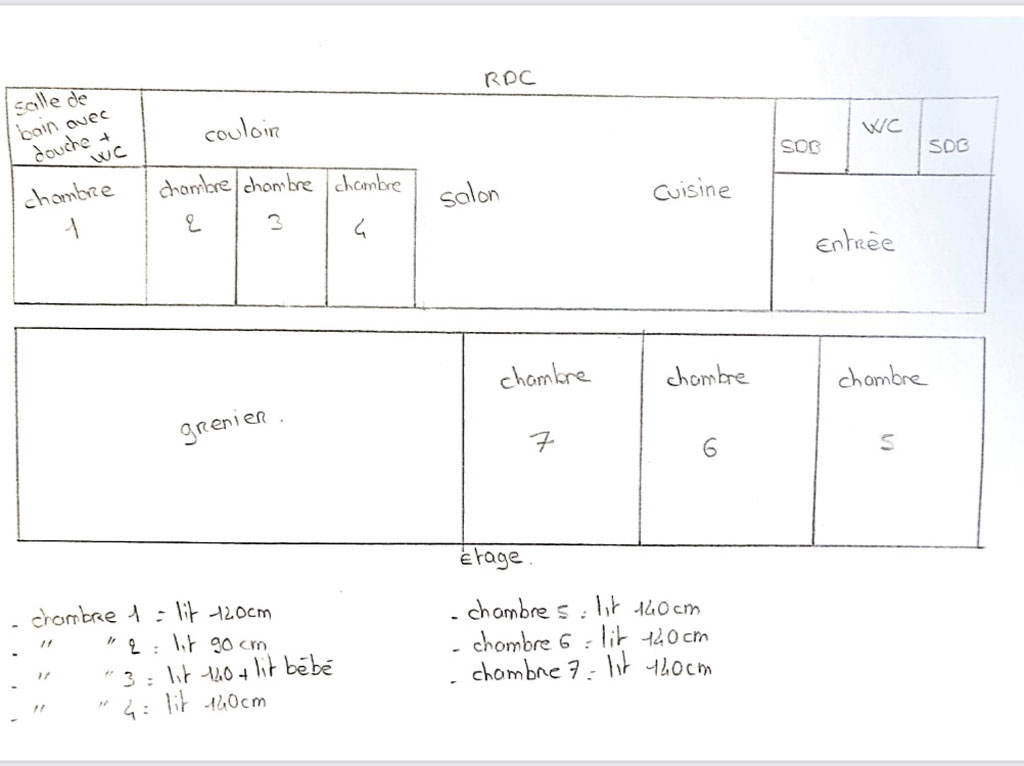 RDC
salle de
bain avec
douche +
WC
couloir
SDB
WC
SDB
chambre
1
chambre
2
chambre
3
chambre
4
salon
cuisine
Entrée
grenier.
chambre
7
chambre
6
chambre
5
Étage.
- chambre 1 = lit 120cm
- " " 2 : lit 90 cm
- " " 3 = lit 140 + lit bébé
- " " 4 = lit 140cm
- chambre 5 : lit 140 cm
- chambre 6 : lit 140 cm
- chambre 7 : lit 140 cm